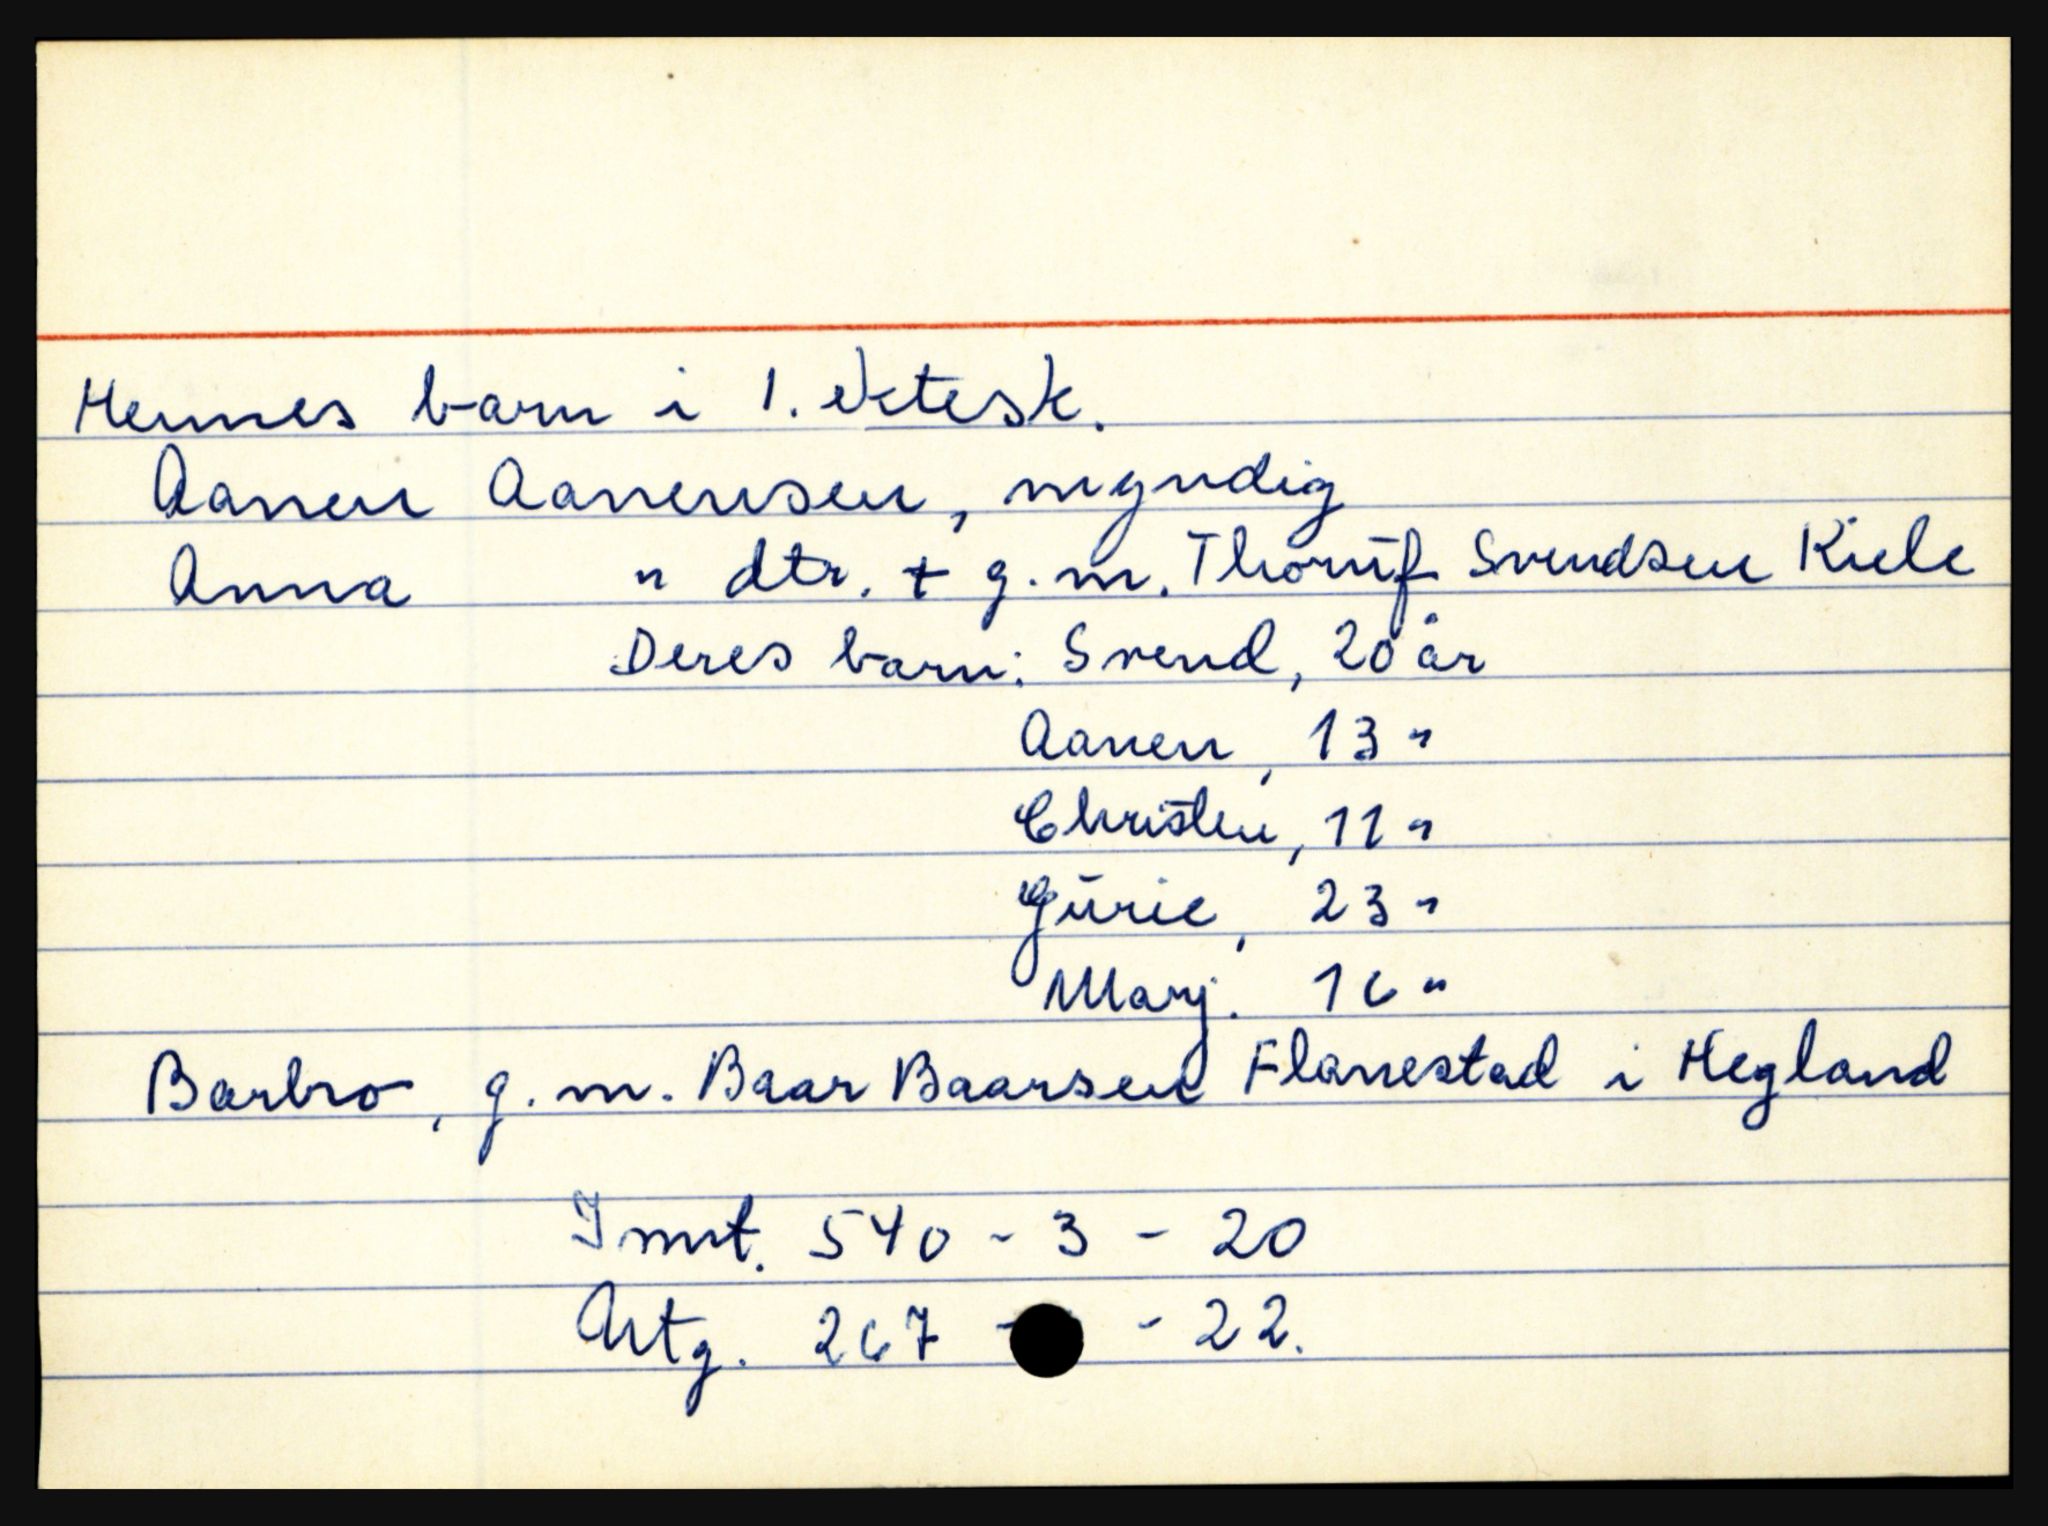 Hennes barn i 1. ektesk.
Aanen Aanensen, myndig
Anna " dtr. + g.m. Thorúf Svendsen Kiele
Deres barn: Svend, 20 år
Aanen, 13 "
Christen, 11 "
Gurie, 23 "
Marj. 16 "
Barbro, g.m. Baar Baarsen Flanestad i Hegland
Innt. 540 - 3 - 20
Utg. 267 - - 22.